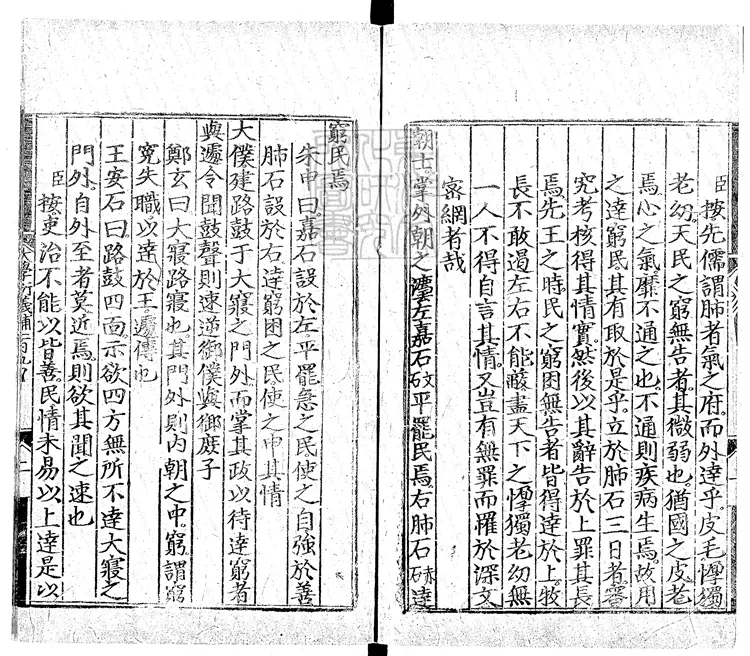 臣按先儒謂肺者氣之府而外達乎皮毛惸獨
老幼天民之窮無告者其微弱也猶國之皮毛
焉心之氣靡不通之也不通則疾病生焉故用
之達窮民其有取於是乎立於肺石三日者審
究考核得其情實然後以其辭告於上罪其長
焉先王之時民之窮困無告者皆得達於上牧
長不敢遏左右不能蔽盡天下之惸獨老幼無
一人不得自言其情又豈有無罪而罹於深文
密網者哉
朝士掌外朝之灋左嘉石平罷民焉右肺石達
窮民焉
朱申曰嘉石設於左平罷惫之民使之自強於善
肺石設於右達窮困之民使之申其情
大僕建路鼓于大寢之門外而掌其政以待達窮者
與遽令聞鼓聲則速逆御僕與御庶子
鄭玄曰大寢路寢也其門外則内朝之中窮謂窮
冤失職以達於王遽傳也
王安石曰路鼓四面示欲四方無所不達大寢之
門外自外至者莫近焉則欲其聞之速也
臣按吏治不能以皆善民情未易以上達是以
大學衍義補